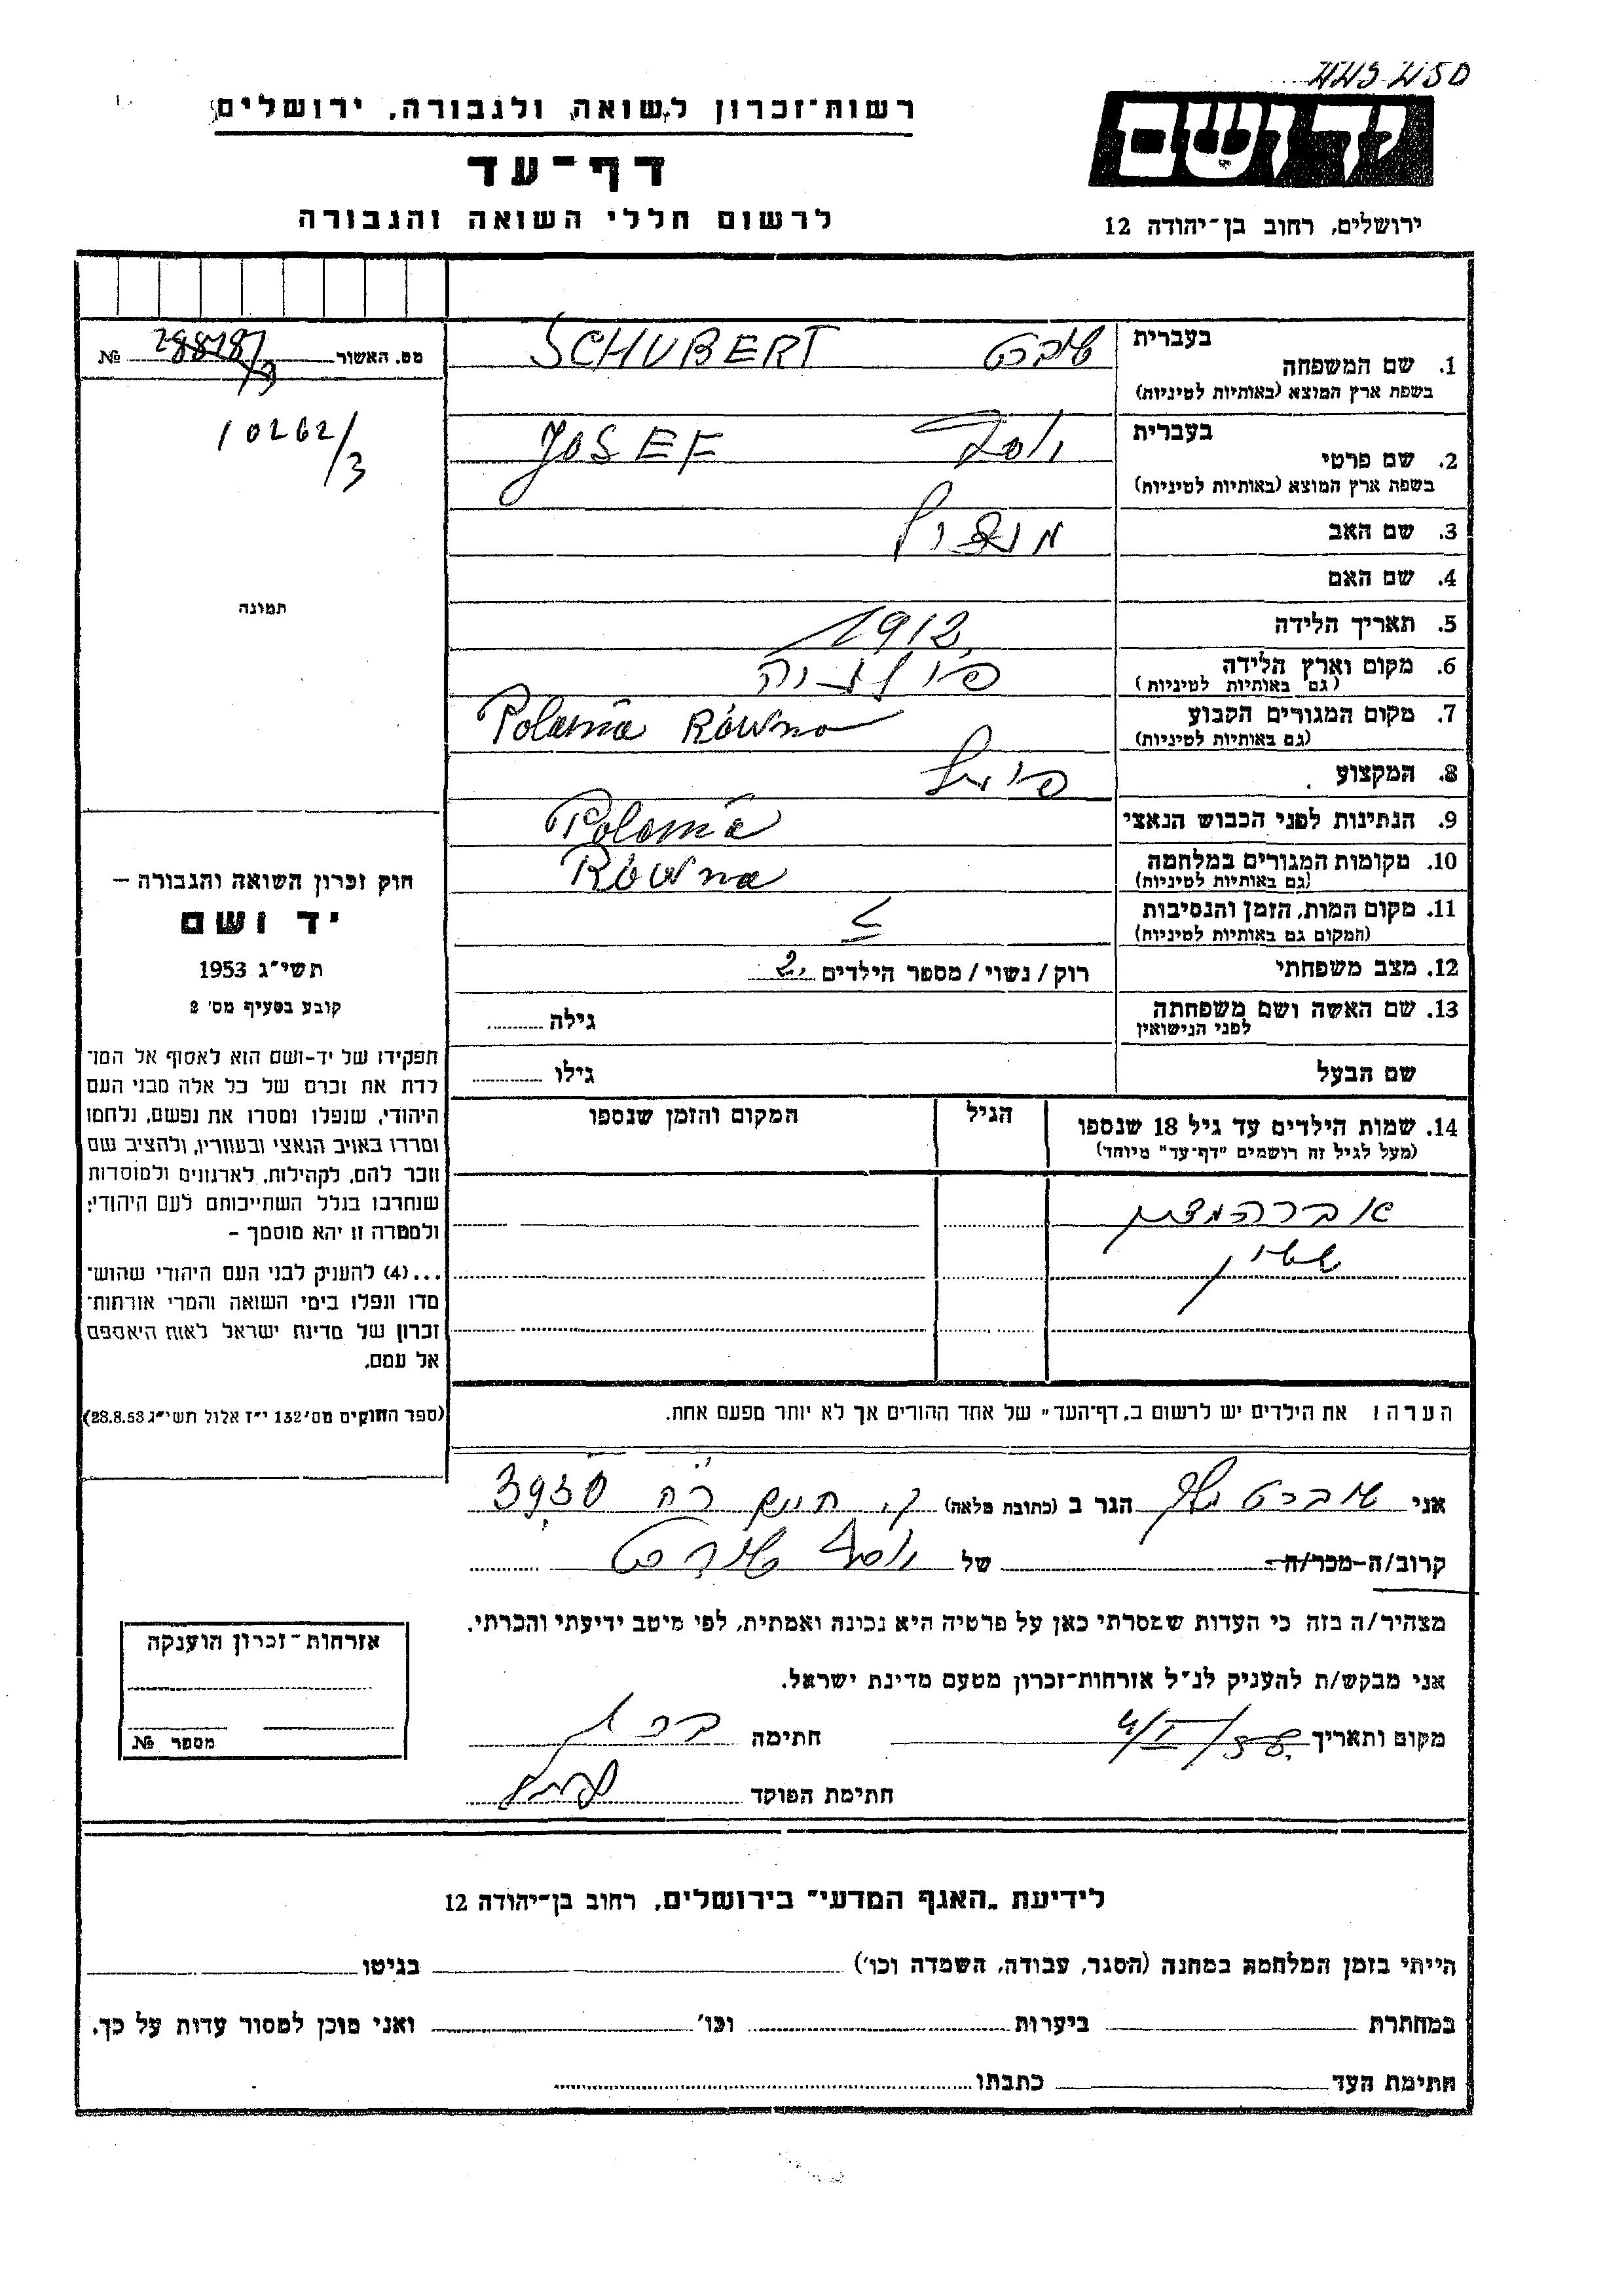 רשות־זכרון לשואה ולגבורה, ירושלים
דף־עד
לרשום חללי השואה והגבורה
יד ושם
ירושלים, רחוב בן־יהודה 12
מס. האשור 288787/3 №
10262/3
תמונה
1. שם המשפחה בעברית שוברט SCHUBERT
בשפת ארץ המוצא (באותיות לטיניות)
2. שם פרטי בעברית יוסף JOSEF
בשפת ארץ המוצא (באותיות לטיניות)
3. שם האב
4. שם האם
5. תאריך הלידה 1912
6. מקום וארץ הלידה פולניה
(גם באותיות לטיניות)
7. מקום המגורים הקבוע Polania Równo
(גם באותיות לטיניות)
8. המקצוע פועל
9. הנתינות לפני הכבוש הנאצי Polania
10. מקומות המגורים במלחמה Równa
(גם באותיות לטיניות)
11. מקום המות, הזמן והנסיבות
(המקום גם באותיות לטיניות)
12. מצב משפחתי רוק/נשוי/מספר הילדים 2
13. שם האשה ושם משפחתה גילה
לפני הנישואין
שם הבעל גילו
14. שמות הילדים עד גיל 18 שנספו הגיל המקום והזמן שנספו
(מעל לגיל זה רושמים "דף־עד" מיוחד)
הערה: את הילדים יש לרשום ב„דף־העד" של אחד ההורים אך לא יותר מפעם אחת.
חוק זכרון השואה והגבורה –
יד ושם
תשי״ג 1953
קובע בסעיף מס׳ 2
תפקידו של יד-ושם הוא לאסוף אל המו־
לדת את זכרם של כל אלה מבני העם
היהודי, שנפלו ומסרו את נפשם, נלחמו
ומרדו באויב הנאצי ובעוזריו, ולהציב שם
וזכר להם, לקהילות, לארגונים ולמוסדות
שנחרבו בגלל השתייכותם לעם היהודי;
ולמטרה זו יהא מוסמך –
...(4) להעניק לבני העם היהודי שהוש־
מדו ונפלו בימי השואה והמרי אזרחות־
זכרון של מדינת ישראל לאות היאספם
אל עמם.
(ספר החוקים מס׳ 132 י״ז אלול תשי״ג 28.8.53)
אני שוברט הגר ב (כתובת מלאה) ק. חיים
קרוב/ה-מכר/ה של יוסף שוברט
מצהיר/ה בזה כי העדות שמסרתי כאן על פרטיה היא נכונה ואמתית, לפי מיטב ידיעתי והכרתי.
אני מבקש/ת להעניק לנ״ל אזרחות־זכרון מטעם מדינת ישראל.
מקום ותאריך חתימה
חתימת הפוקד
אזרחות־זכרון הוענקה
מספר №
לידיעת „האגף המדעי" בירושלים, רחוב בן־יהודה 12
הייתי בזמן המלחמה במחנה (הסגר, עבודה, השמדה וכו׳) בגיטו
במחתרת ביערות וכו׳ ואני מוכן למסור עדות על כך.
חתימת העד כתבתו